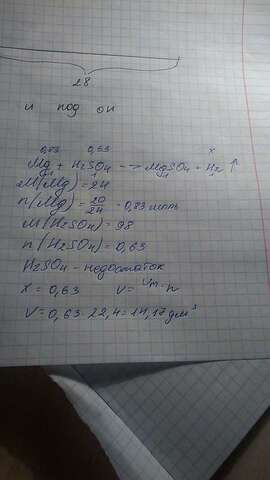 28
и под он
0,83 0,63 x
Mg + H2SO4 -> MgSO4 + H2 ↑
1 1 1 1
M(Mg) = 24
n(Mg) = 20/24 = 0,83 моль
M(H2SO4) = 98
n(H2SO4) = 0,63
H2SO4 - недостаток
x = 0,63 V = Vm · n
V = 0,63 · 22,4 = 14,17 дм³